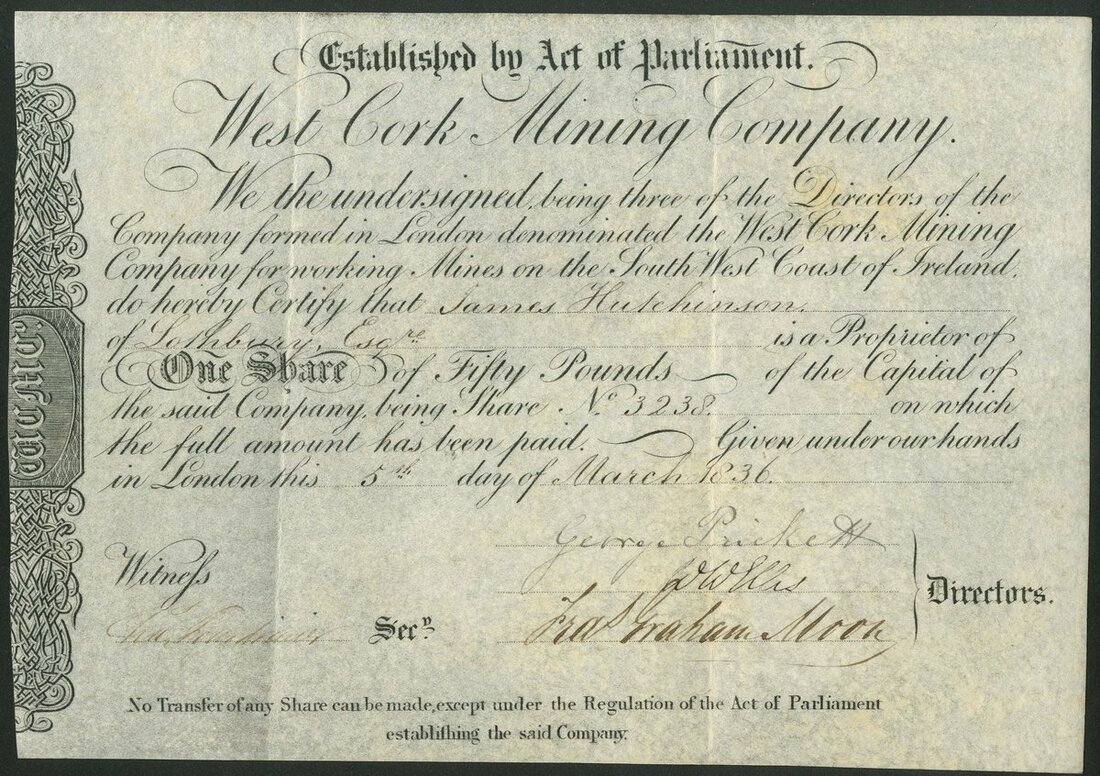 Established by Act of Parliament.
West Cork Mining Company.
We the undersigned, being three of the Directors of the
Company formed in London denominated the West Cork Mining
Company for working Mines on the South West Coast of Ireland,
do hereby Certify that James Hutchinson.
of Lothbury, Esqre is a Proprietor of
One Share of Fifty Pounds of the Capital of
the said Company, being Share No 3238. on which
the full amount has been paid. Given under our hands
in London this 5th day of March 1836.
George Prickett
Witneſs
D W Ellis
Directors.
Secy
Fras Graham Moon
No Transfer of any Share can be made, except under the Regulation of the Act of Parliament
establiſhing the said Company.
W.C.M.C.